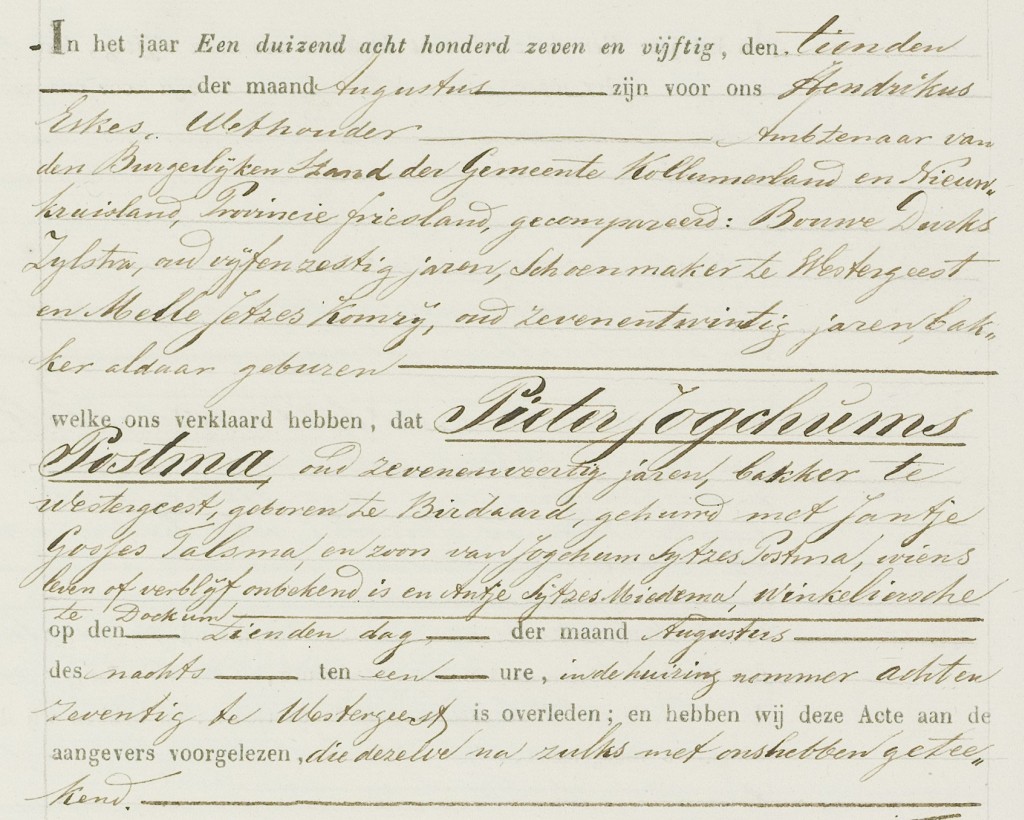 In het jaar Een duizend acht honderd zeven en vijftig, den tienden
der maand Augustus zijn voor ons Hendrikus
Eskes, Wethouder Ambtenaar van
den Burgerlijken Stand der Gemeente Kollumerland en Nieuw„
kruisland, Provincie friesland, gecompareerd: Bouwe Durks
Zylstra, oud vijfenzestig jaren, Schoenmaker te Westergeest
en Melle Jetzes Komrij, oud zevenentwintig jaren, bak„
ker aldaar geburen
welke ons verklaard hebben, dat Pieter Jogchums
Postma, oud zevenenveertig jaren, bakker te
Westergeest, geboren te Birdaard, gehuwd met Jantje
Gosjes Talsma, en zoon van Jogchum Sytzes Postma, wiens
leven of verblijf onbekend is en Antje Sytzes Miedema, winkeliersche
te Dockum
op den tienden dag der maand Augustus
des nachts ten een ure, in de huizing nommer acht en
zeventig te Westergeest is overleden; en hebben wij deze Acte aan de
aangevers voorgelezen, die dezelve na zulks met ons hebben getee„
kend.